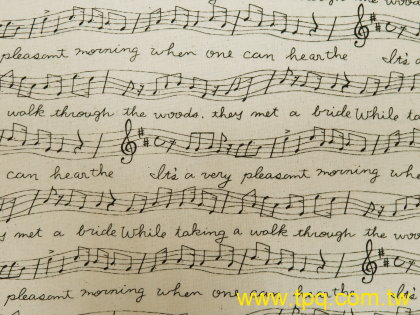 through the woods
pleasant morning when one can hearthe It's a
walk through the woods. they met a bride While ta
can hearthe It's a very pleasant morning whe
y met a bride While taking a walk through the woo
pleasant morning when one can hearthe It's
www.tpq.com.tw